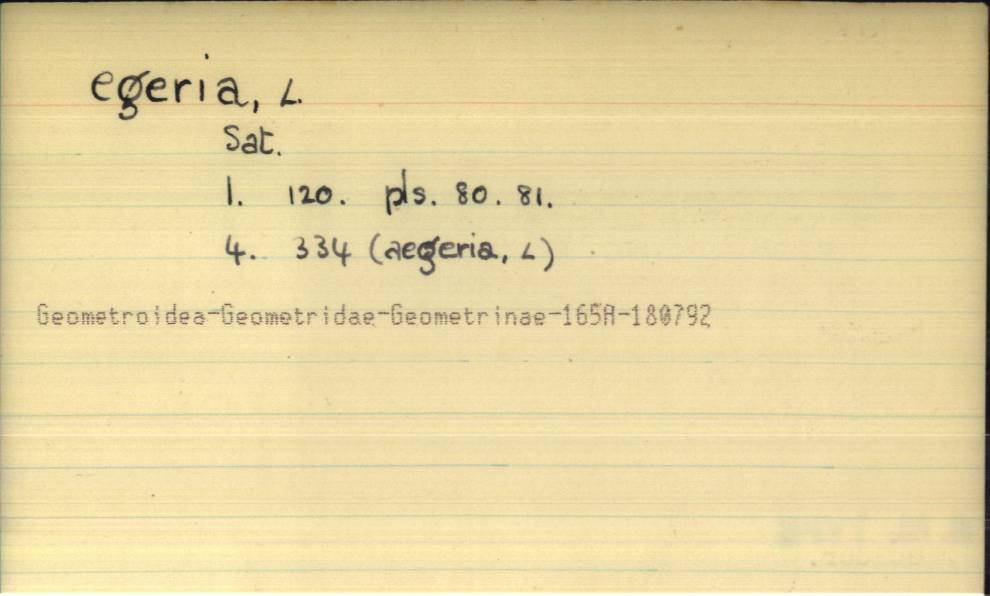 egeria, L.
Sat.
1. 120. pls. 80. 81.
4. 334 (aegeria, L)
Geometroidea-Geometridae-Geometrinae-165A-180792